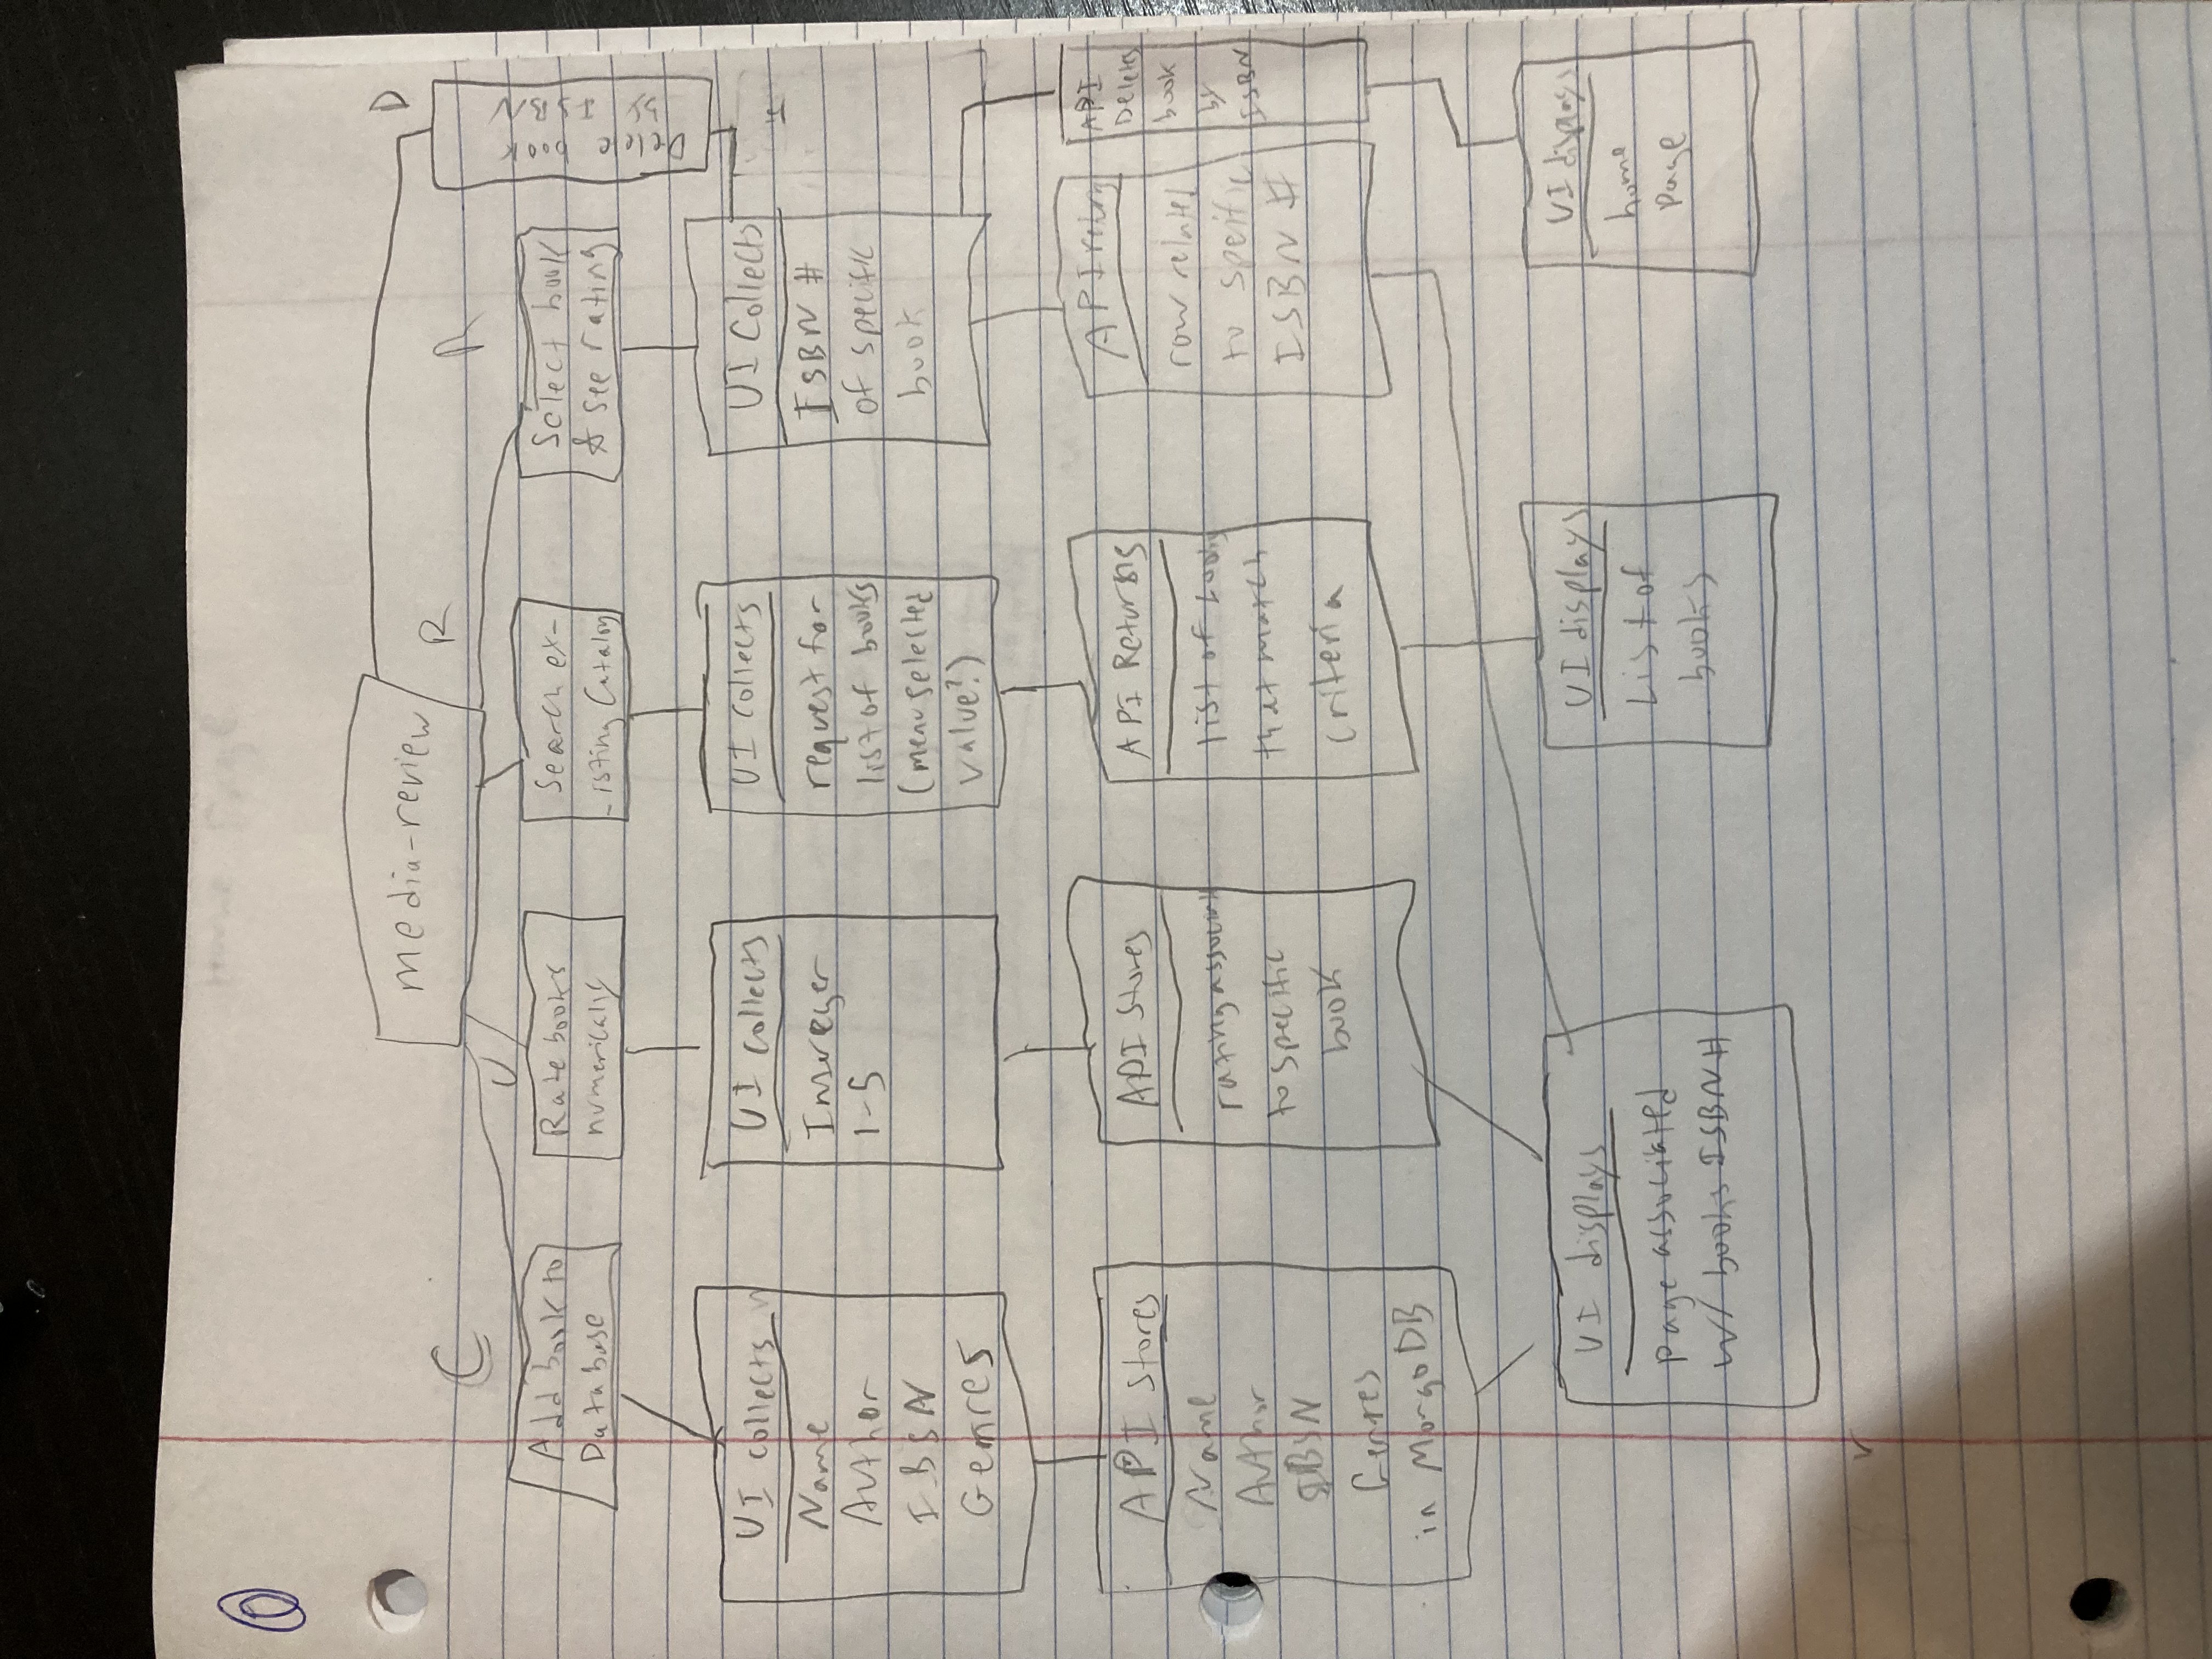 media-review
C
U
R
R
D
Add book to
Database
Rate books
numerically
Search ex-
-isting Catalog
Select book
& see rating
Delete book
by ISBN
UI collects
Name
Author
IBSN
Genres
UI collects
Integer
1-5
UI collects
request for
list of books
(menu selected
value?)
UI Collects
ISBN #
of specific
book
API stores
Name
Author
IBSN
Genres
in MongoDB
API stores
rating associated
to specific
book
API Returns
list of books
that match
criteria
API return
row related
to speific
ISBN #
API
Deletes
book
by
ISBN
UI displays
page associated
w/ books ISBN #
UI displays
List of
books
UI displays
home
page